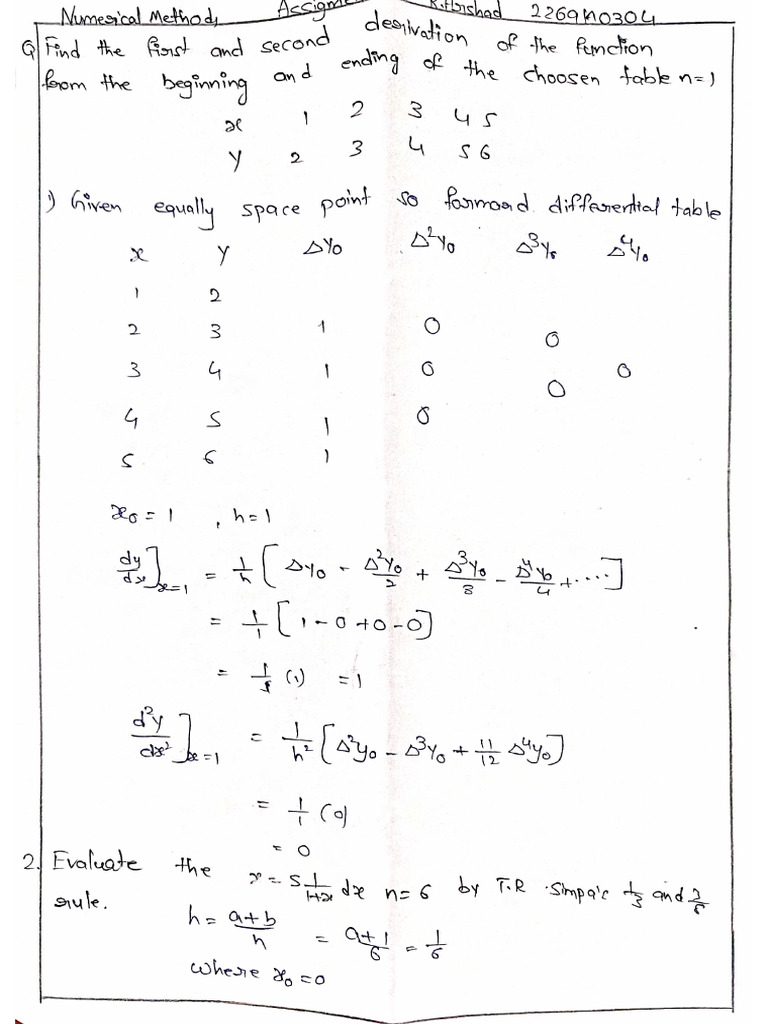 Numerical Methods Assignme K.Harshad 2269M0304
Q Find the first and second derivation of the function
from the beginning and ending of the choosen table n=1
x 1 2 3 4 5
y 2 3 4 5 6
1) Given equally space point so forward differential table
x y Δy₀ Δ²y₀ Δ³y₀ Δ⁴y₀
1 2
2 3 1 0 0
3 4 1 0 0 0
4 5 1 0
5 6 1
x₀ = 1 , h=1
dy/dx]ₓ₌₁ = 1/h [Δy₀ - Δ²y₀/2 + Δ³y₀/3 - Δ⁴y₀/4 + ....]
= 1/1 [1-0+0-0]
= 1/1 (1) = 1
d²y/dx²]ₓ₌₁ = 1/h² [Δ²y₀ - Δ³y₀ + 11/12 Δ⁴y₀]
= 1/1 (0)
= 0
2. Evaluate the x = S 1/1+x dx n=6 by T.R . 1/3 and
rule.
h = a+b/n = a+1/6 = 1/6
where x₀ = 0